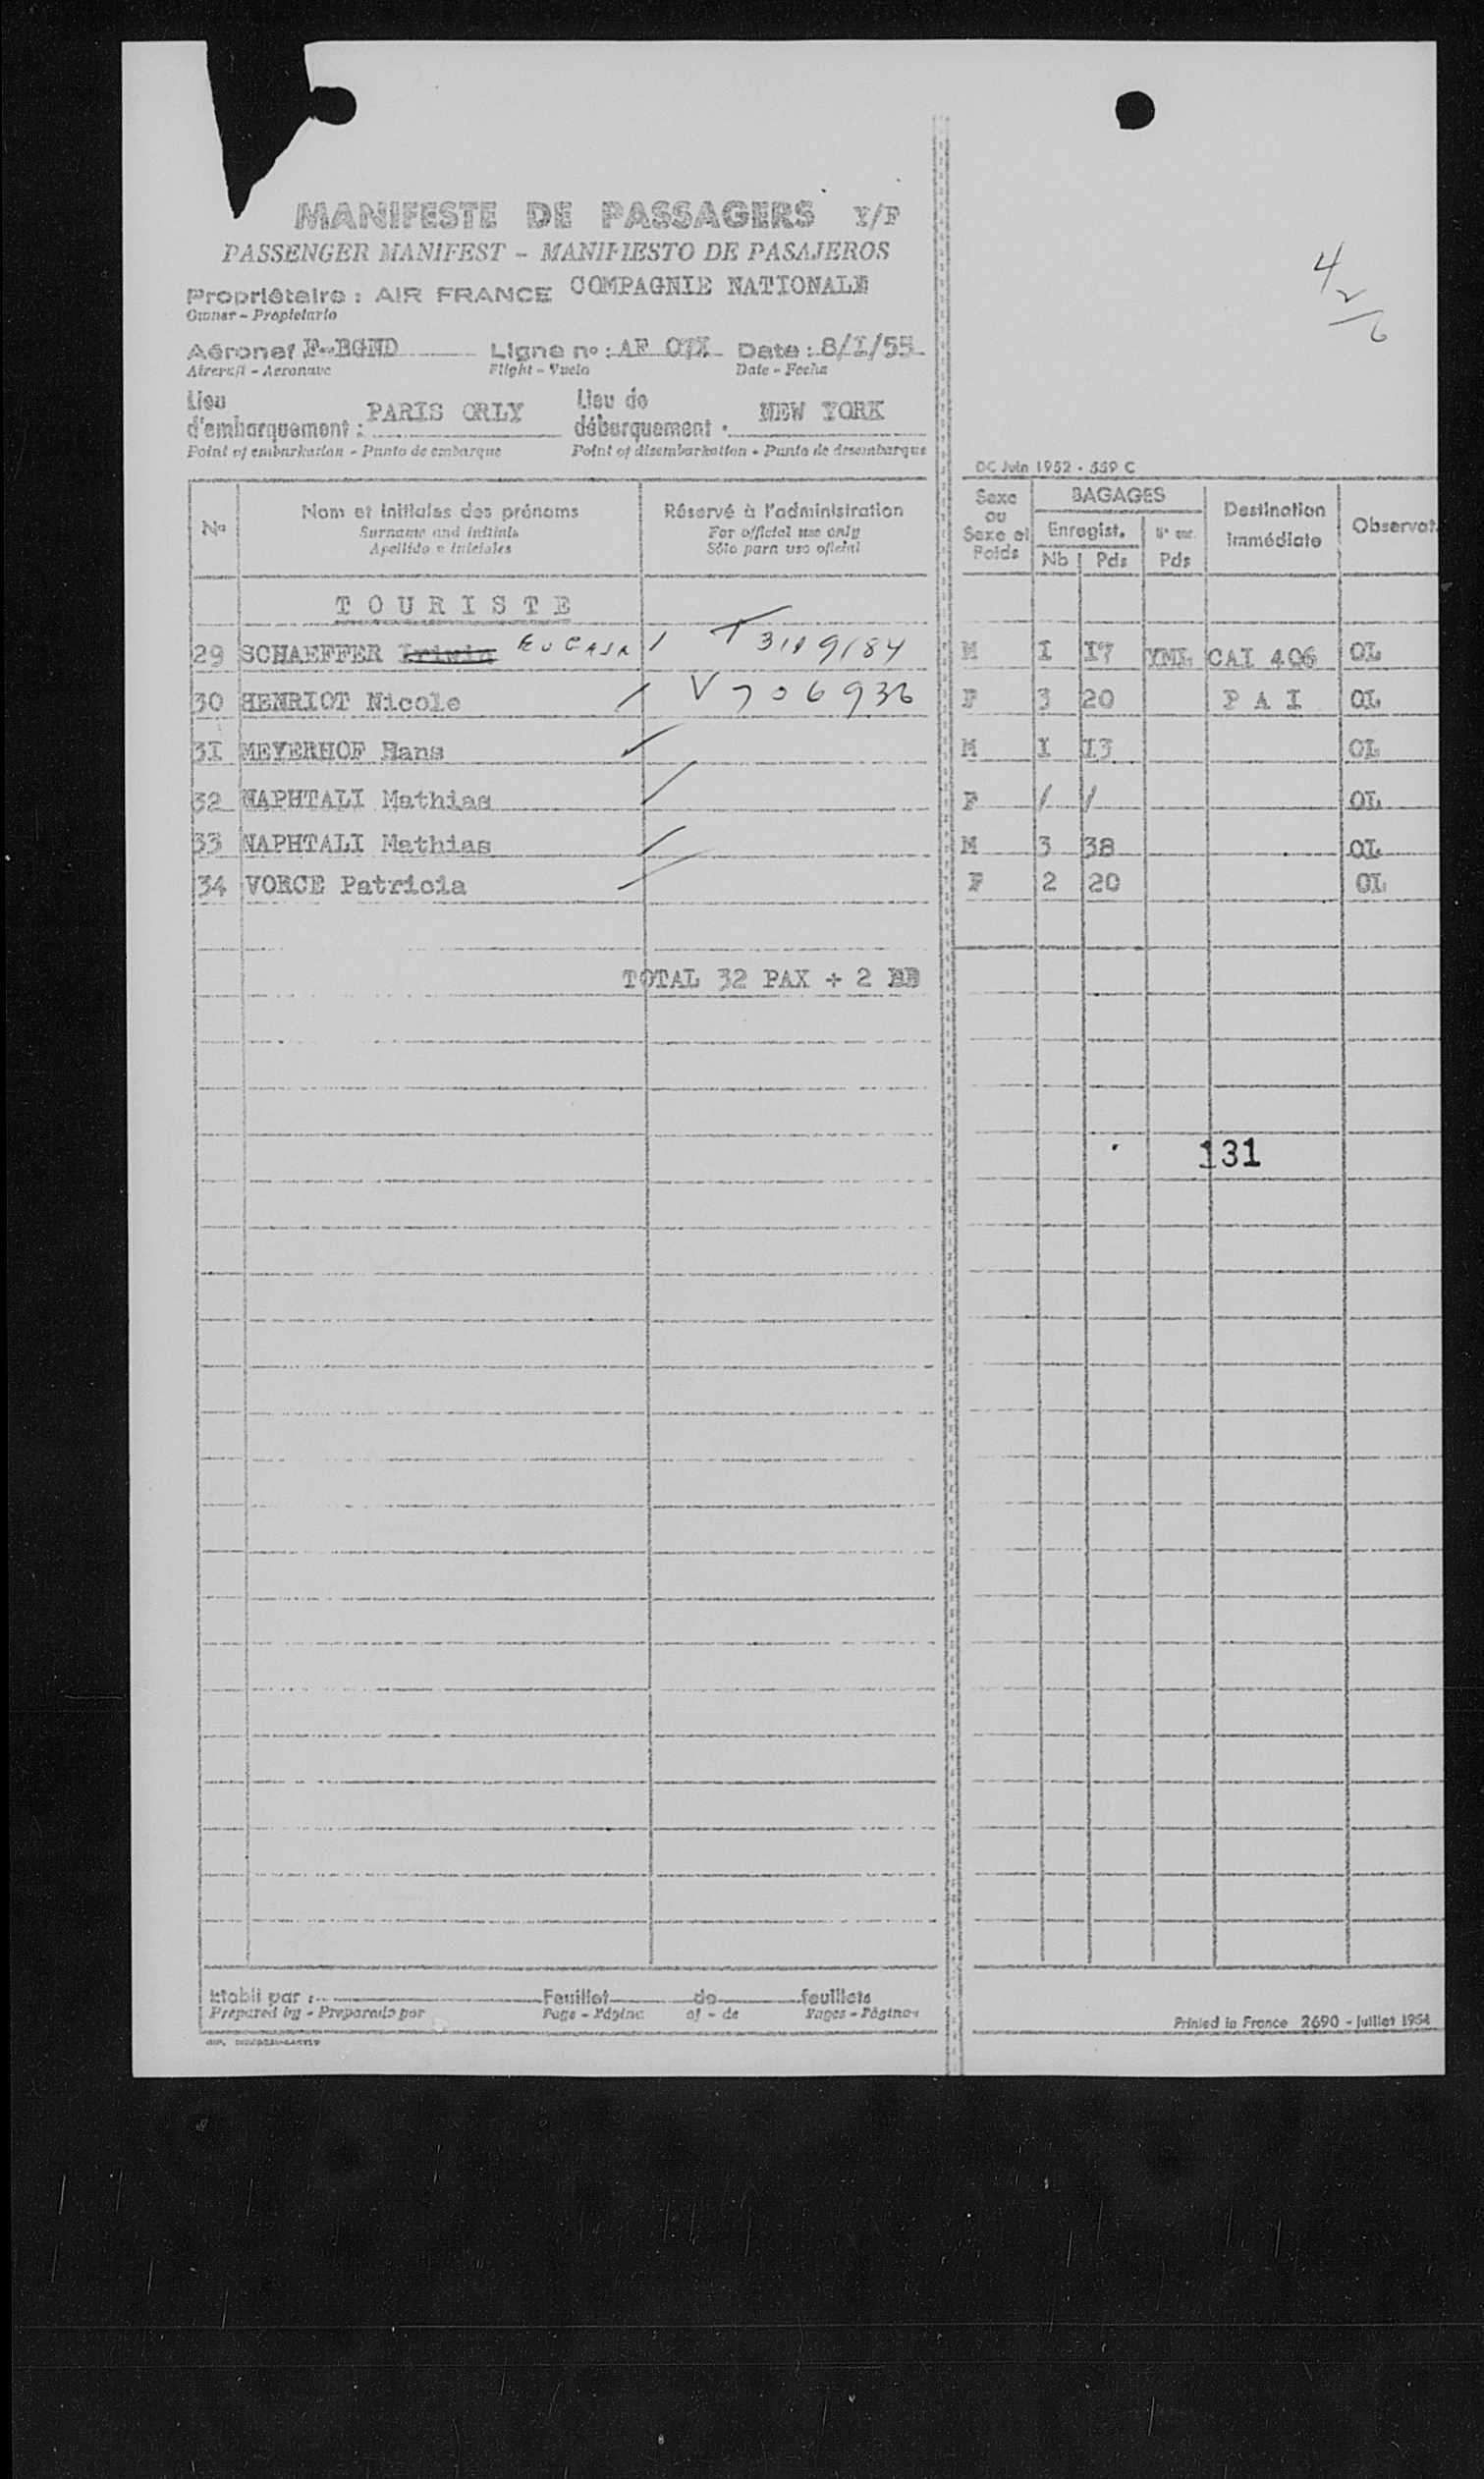 MANIFESTE DE PASSAGERS Y/F
PASSENGER MANIFEST - MANIFIESTO DE PASAJEROS
4
2
6
Propriétaire : AIR FRANCE COMPAGNIE NATIONALE
Owner - Propietario
Aéronef F-BGND Ligne no : AF 07I Date : 8/I/55
Aircraft - Aeronave Flight - Vuelo Date - Fecha
Lieu d'embarquement : PARIS ORLY Lieu de débarquement : NEW YORK
Point of embarkation - Punto de embarque Point of disembarkation - Punto de desembarque
OC Juin 1952 - 559 C
No Nom et initiales des prénoms Réservé à l'administration Sexe ou Sexe et Poids BAGAGES Destination immédiate Observat.
Surname and initials For official use only Enregist.
Apellido e iniciales Sólo para uso oficial Nb Pds Pds
TOURISTE
29 SCHAEFFER T 3119184 M I I7 YML CAI 406 OL
30 HENRIOT Nicole / V 706936 F 3 20 P A I OL
3I MEYERHOF Hans M I I3 OL
32 NAPHTALI Mathias F / / OL
33 NAPHTALI Mathias M 3 38 OL
34 VORCE Patricia F 2 20 OL
TOTAL 32 PAX + 2 BB
131
Etabli par : Feuillet de feuillets
Prepared by - Preparado por Page - Página of - de Pages - Páginas
Printed in France 2690 - Juillet 1954